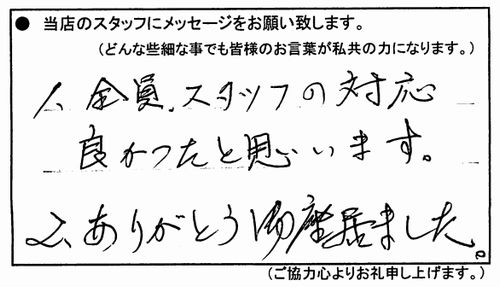 ● 当店のスタッフにメッセージをお願い致します。
(どんな些細な事でも皆様のお言葉が私共の力になります。)
1、全員、スタッフの対応
良かつたと思います。
2、ありがとう御座居ました。
(ご協力心よりお礼申し上げます。)